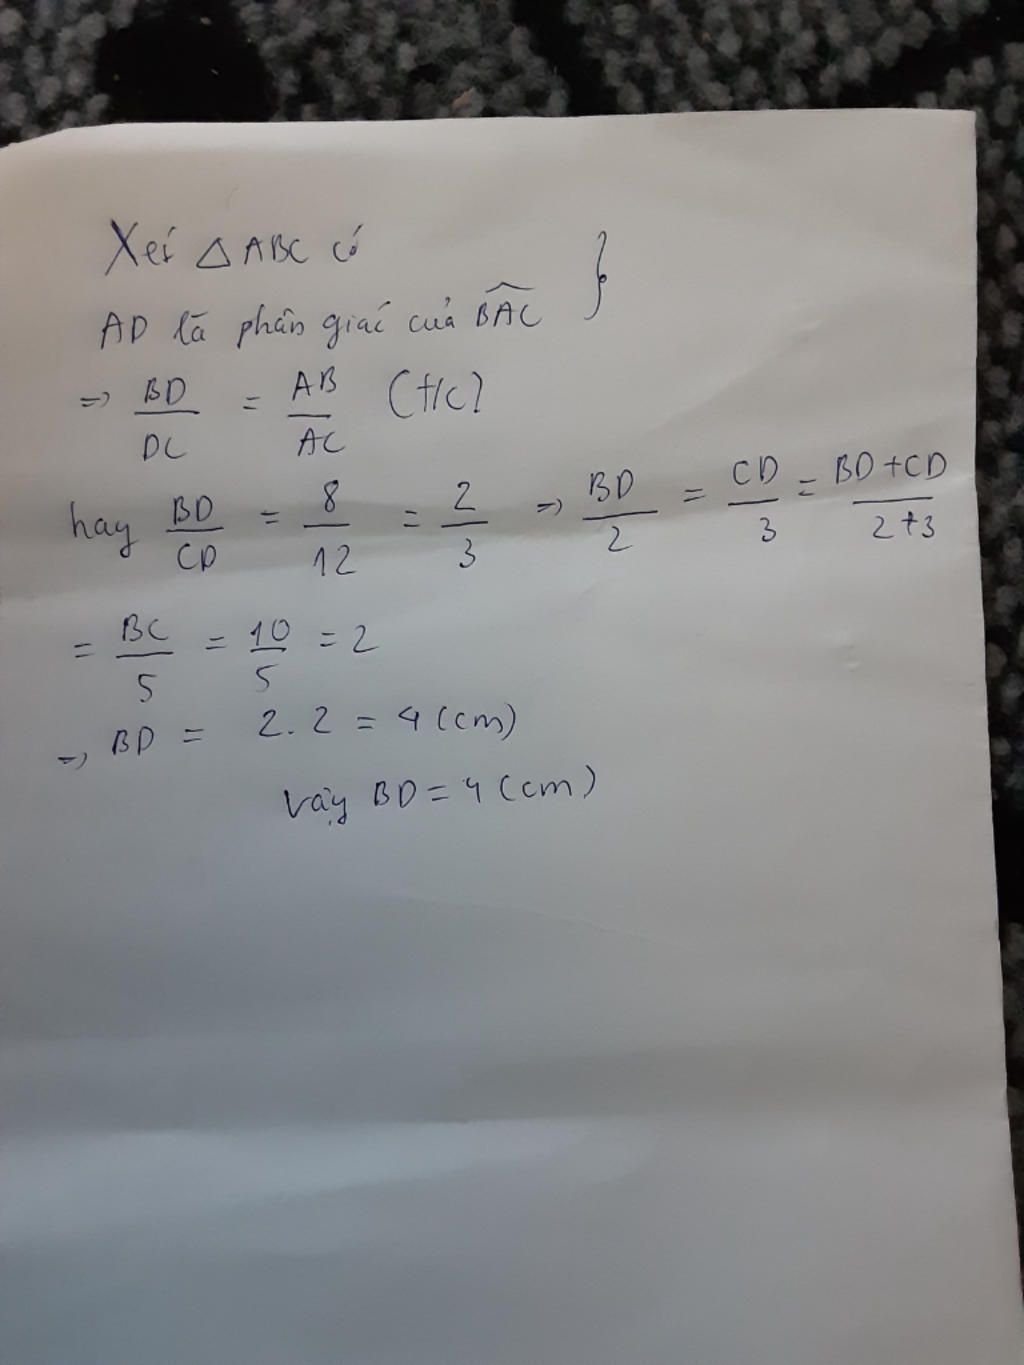 Xét △ABC có }
AD là phân giác của BAC
=> BD/DC = AB/AC (t/c)
hay BD/CD = 8/12 = 2/3 => BD/2 = CD/3 = BD+CD/2+3
= BC/5 = 10/5 = 2
=> BD = 2.2 = 4 (cm)
vậy BD = 4 (cm)